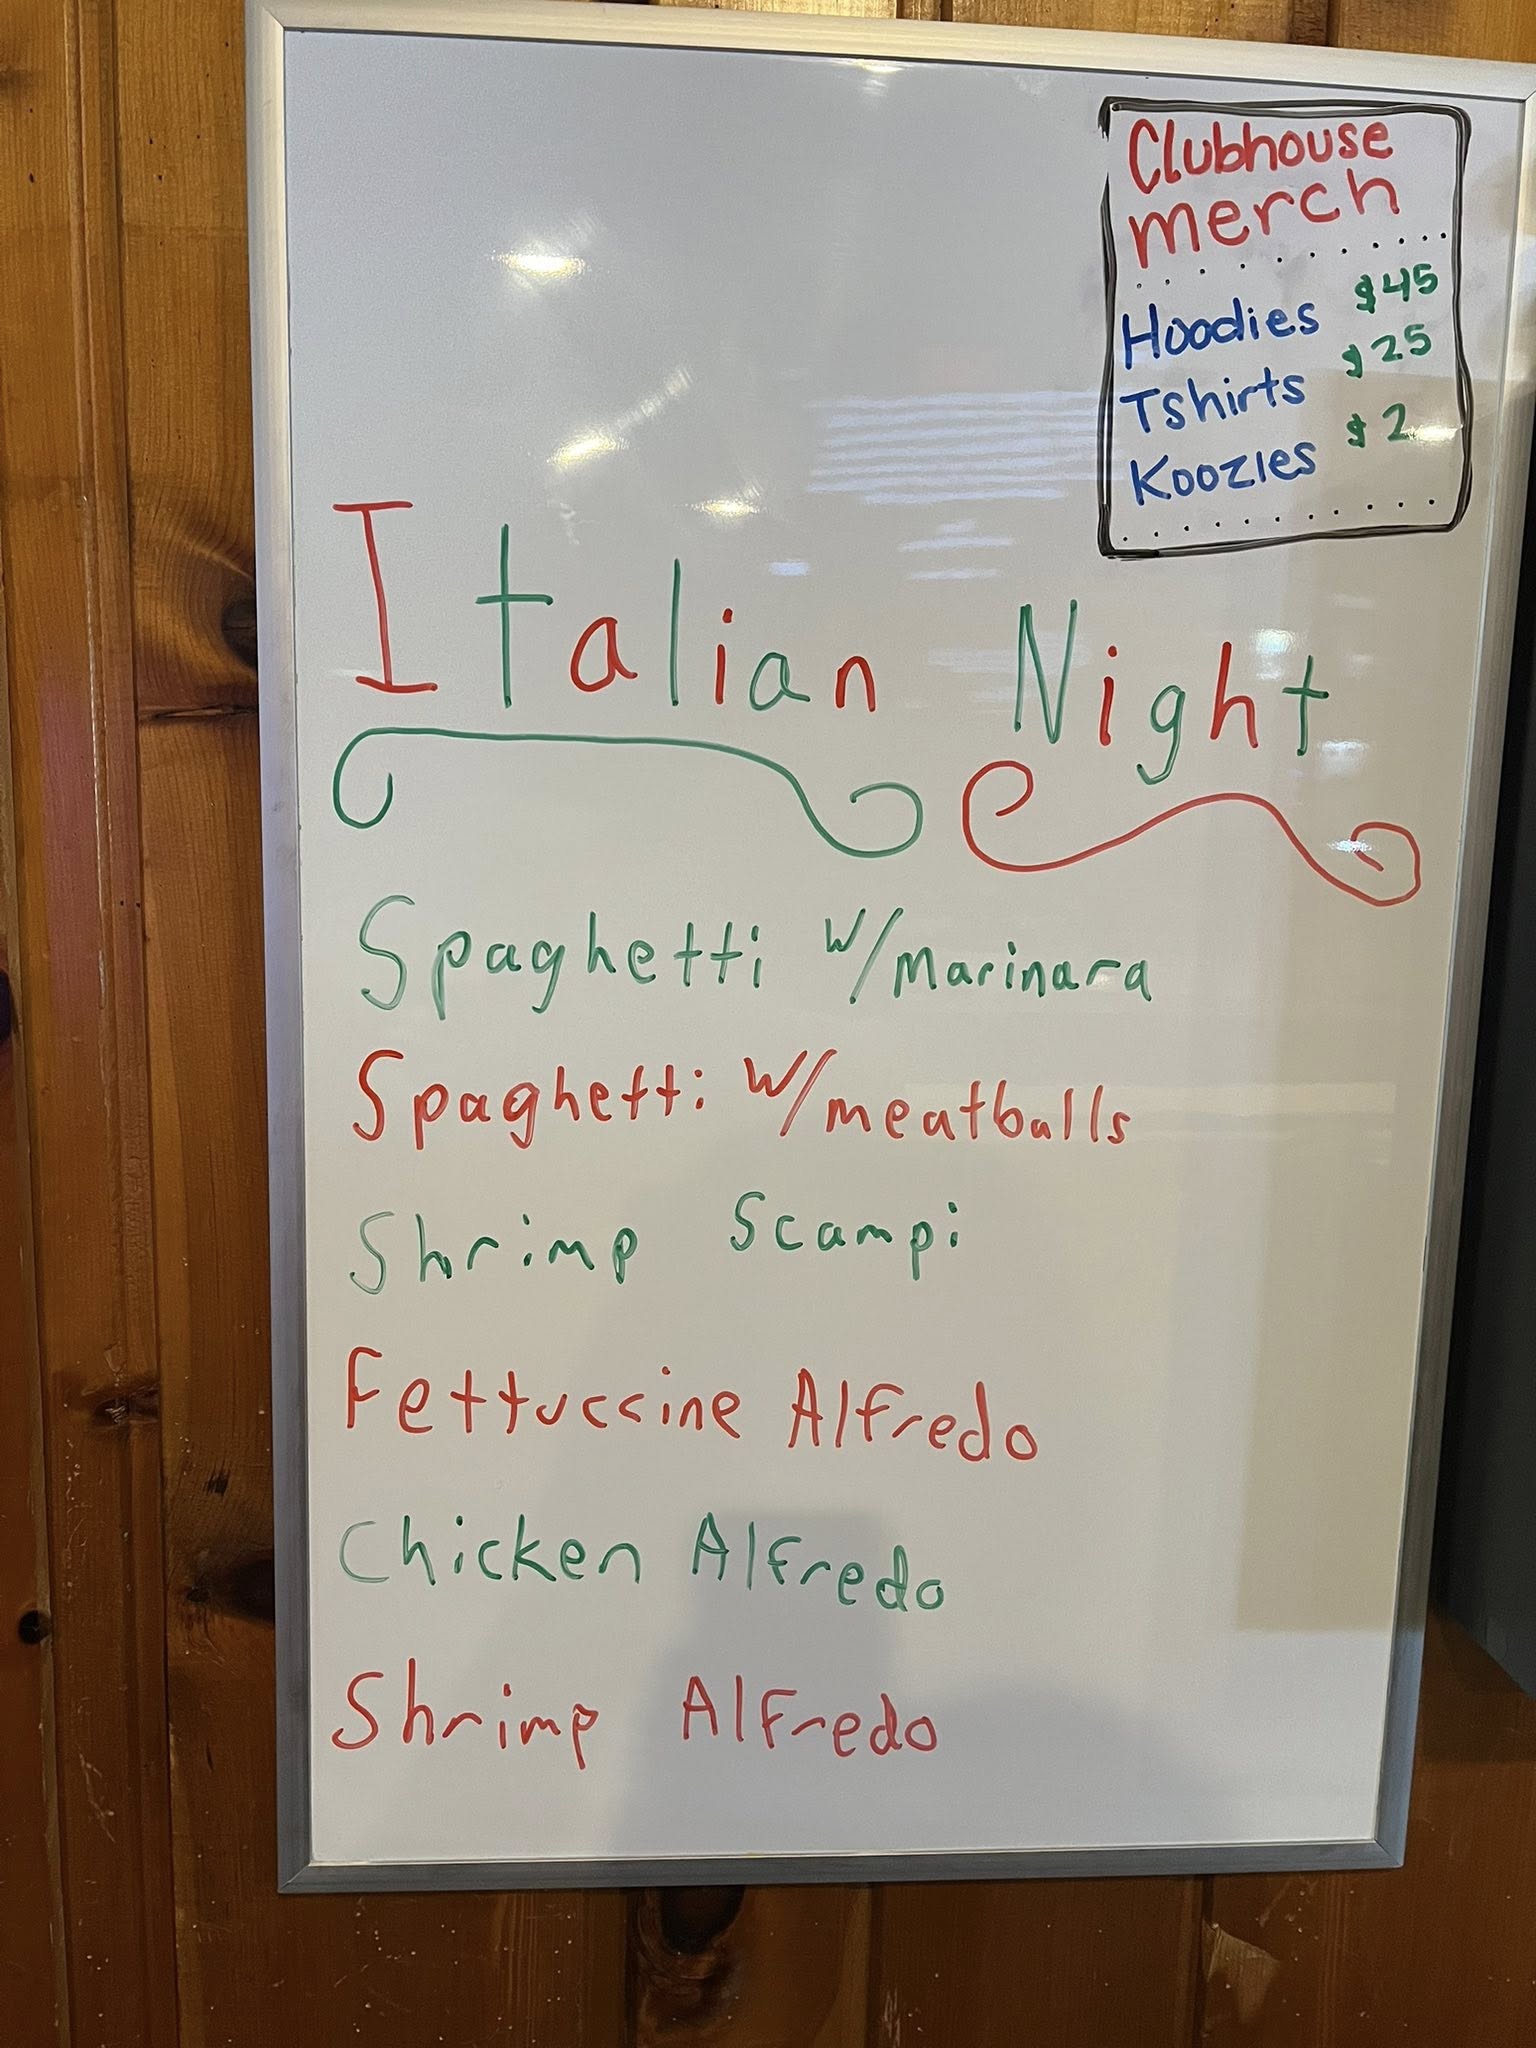 Clubhouse
merch
Hoodies $45
Tshirts $25
Koozies $2
Italian Night
Spaghetti w/marinara
Spaghetti w/meatballs
Shrimp Scampi
Fettuccine Alfredo
Chicken Alfredo
Shrimp Alfredo